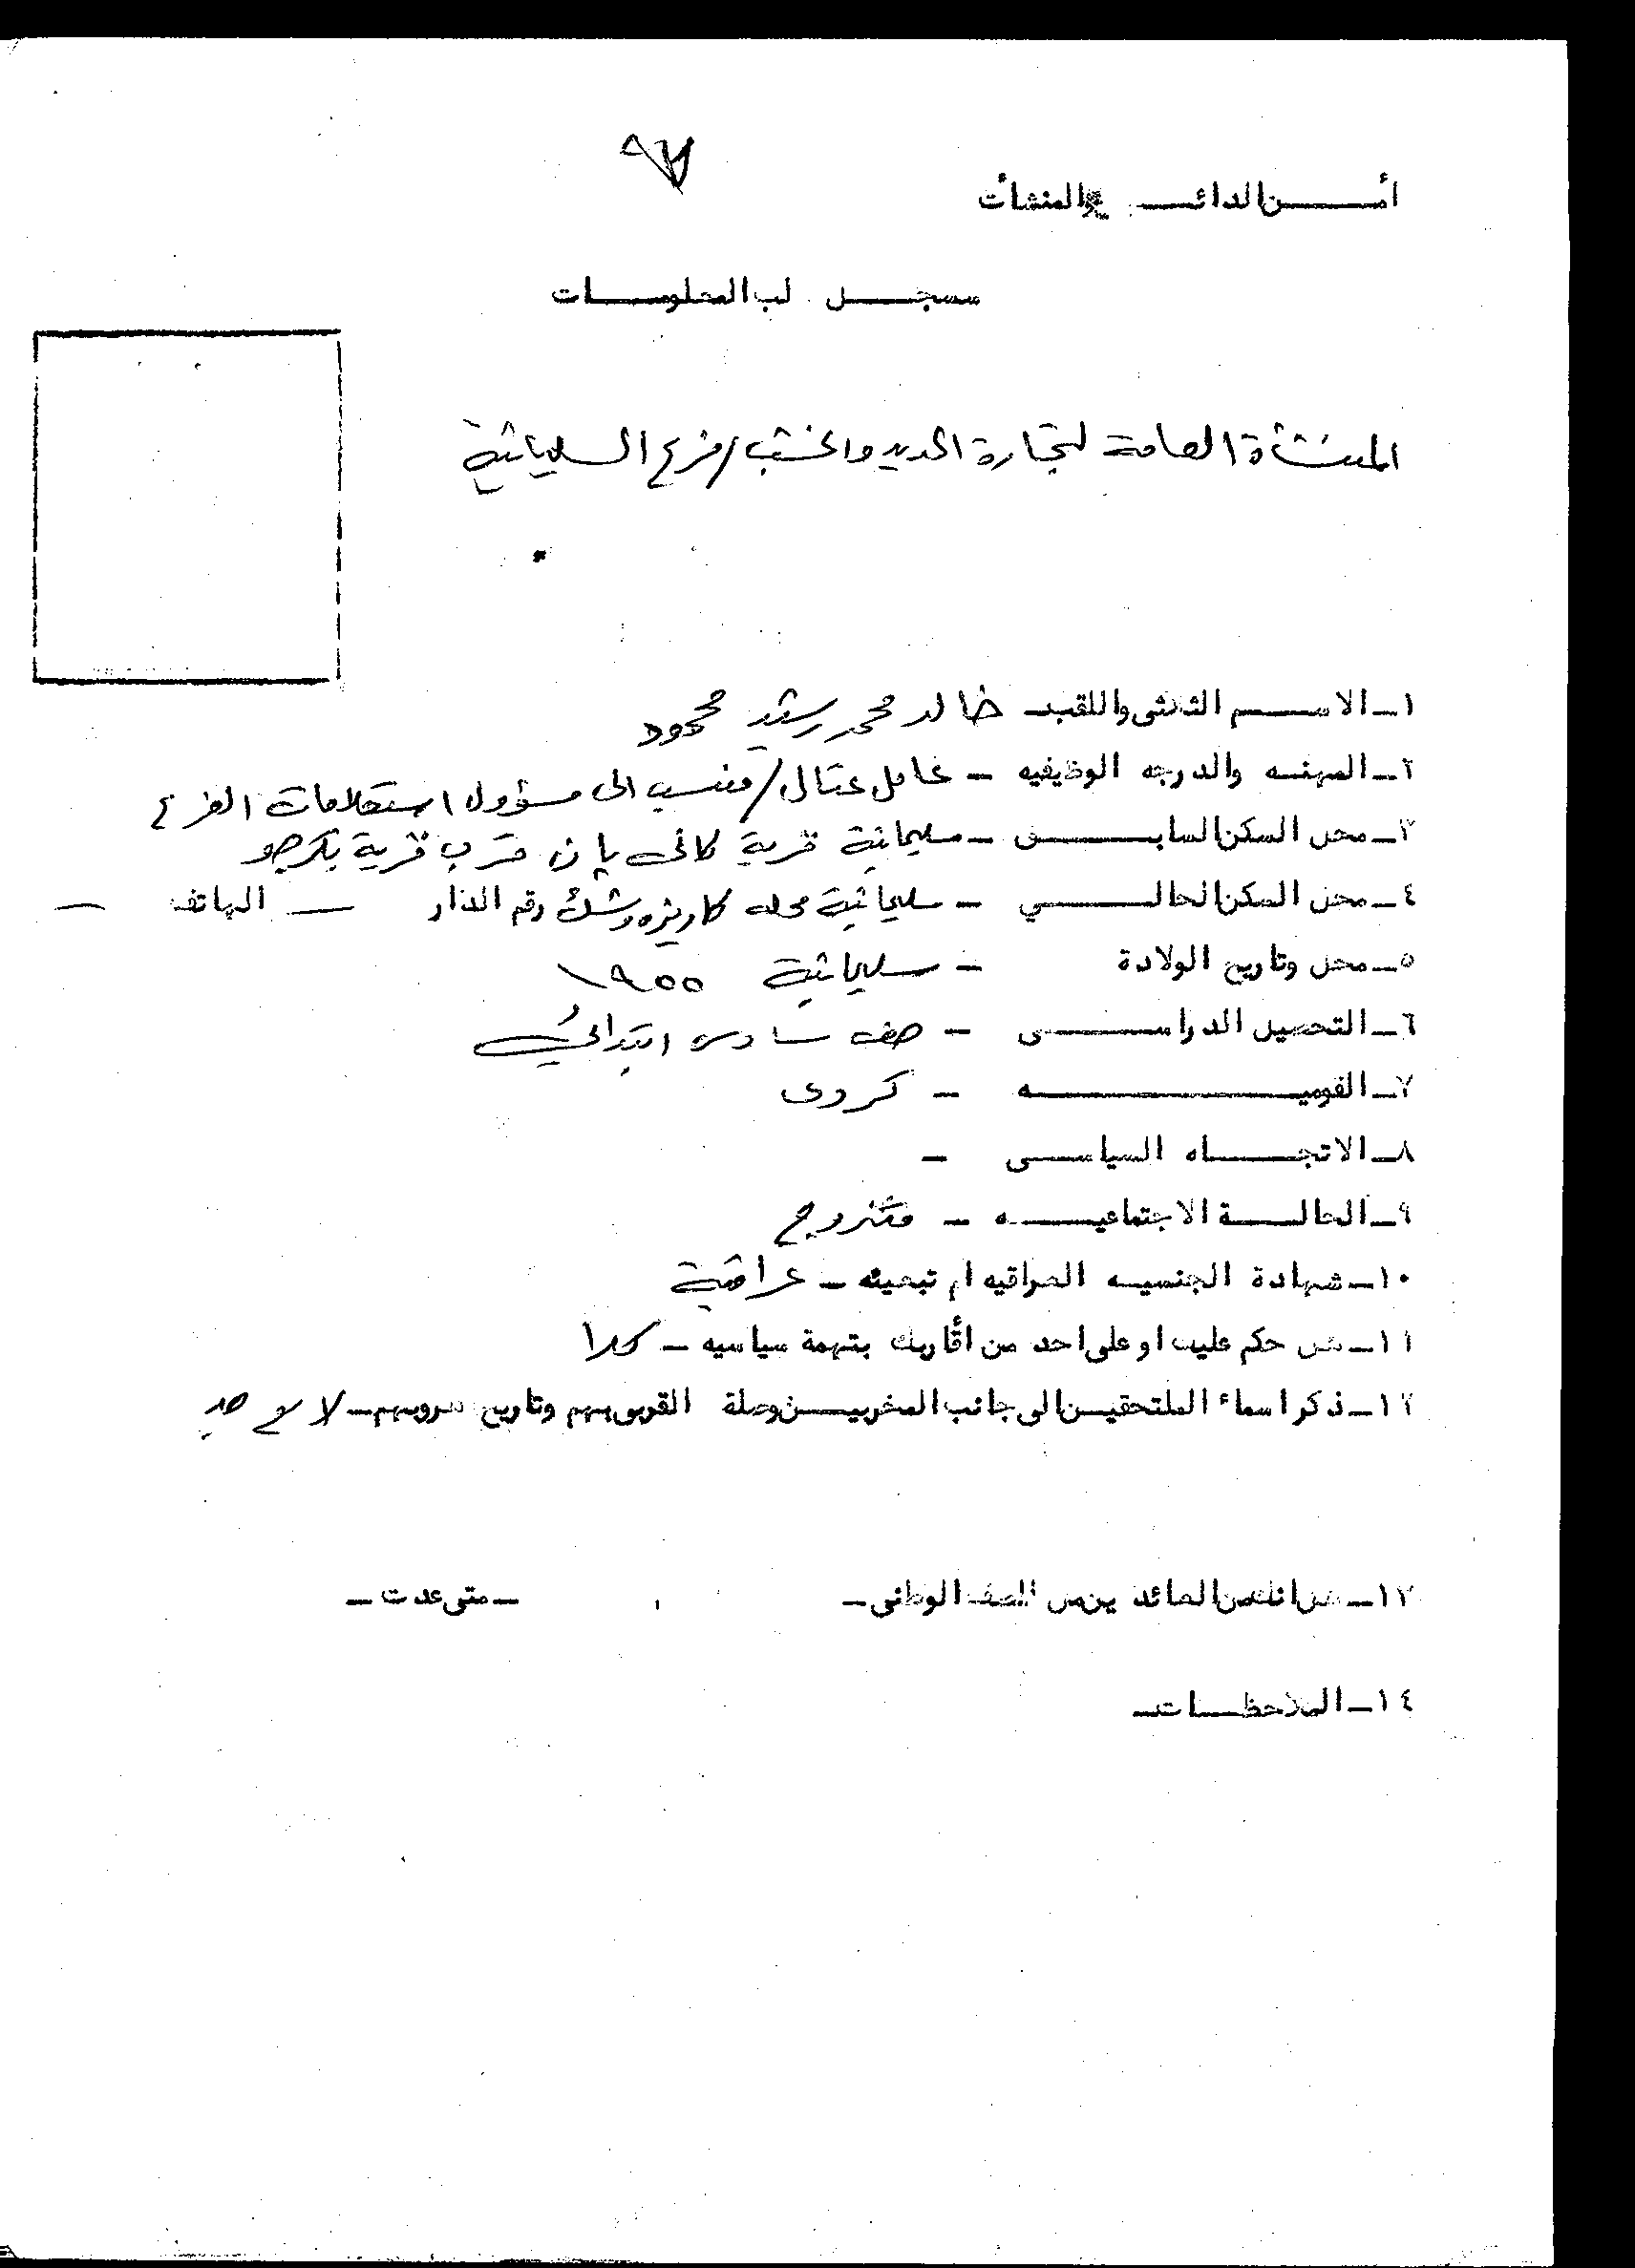 ٩٧
أمـــن الدائـــرة والمنشأت
سجـــل لب المعلومـــات
المنشأة العامة لتجارة الحديد والخشب / فرع السليمانية
١ـ الاســـم الثلاثي واللقبـ خالد محمد رشيد محمود
٢ـ المهنه والدرجه الوظيفيه ـ عامل عتال / منسب الى مسؤول استعلامات الفرع
٣ـ محل السكن السابـــق ـ سليمانية قرية كانى بان قرب قرية بكرجو
٤ـ محل السكن الحالـــي ـ سليمانية محله كاريزه وشك رقم الدار ـ الهاتف ـ
٥ـ محل وتاريخ الولادة ـ سليمانية ١٩٥٥
٦ـ التحصيل الدراســـى ـ صف سادس ابتدائي
٧ـ القوميـــه ـ كردى
٨ـ الاتجـــاه السياســـى ـ
٩ـ الحالـــة الاجتماعيـــه ـ متزوج
١٠ـ شهادة الجنسيه العراقيه ام تبعيه ـ عراقية
١١ـ هل حكم عليك او على احد من أقاربك بتهمة سياسيه ـ كلا
١٢ـ ذكر اسماء الملتحقيـــن الى جانب المخربيـــن وصلة القربى بهم وتاريخ هروبهم ـ لا يوجد
١٣ـ هل انك من العائدين من للصف الوطنى ـ ـ متى عدت ـ
١٤ـ الملاحظـــاتـ